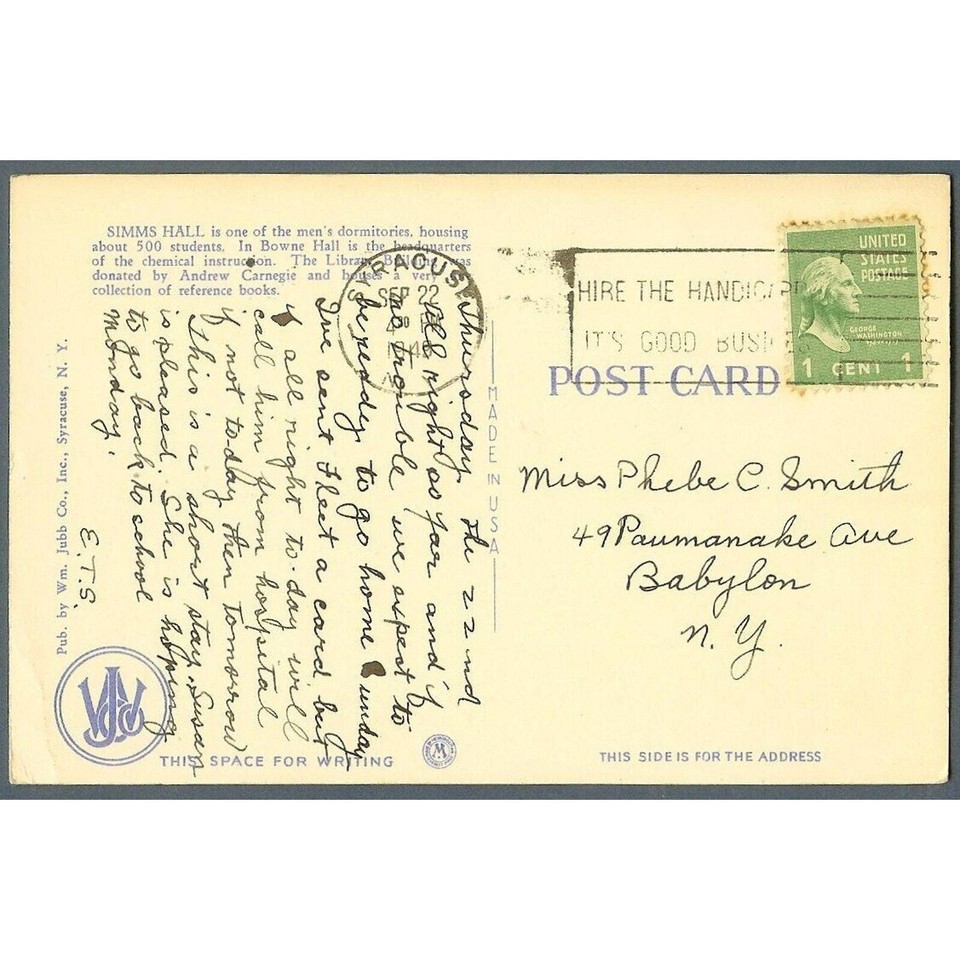 SIMMS HALL is one of the men's dormitories, housing
about 500 students. In Bowne Hall is the headquarters
of the chemical instruction. The Library Building was
donated by Andrew Carnegie and houses a very
collection of reference books.
Thursday the 22nd
All right so far and if
no trouble we expect to
be ready to go home Sunday
I've sent Fleet a card but
if all right to-day will
call him from hospital
if not to-day then tomorrow
This is a short stay. Susan
is pleased. She is hoping
to go back to school
Monday.
E.T.S.
Pub. by Wm. Jubb Co., Inc., Syracuse, N. Y.
WJCo
THIS SPACE FOR WRITING
MADE IN USA
SYRACUSE
SEP 22
HIRE THE HANDICAPP
IT'S GOOD BUSINESS
UNITED
STATES
POSTAGE
GEORGE
WASHINGTON
1 CENT 1
POST CARD
Miss Phebe C. Smith
49 Paumanake Ave
Babylon
N. Y.
THIS SIDE IS FOR THE ADDRESS